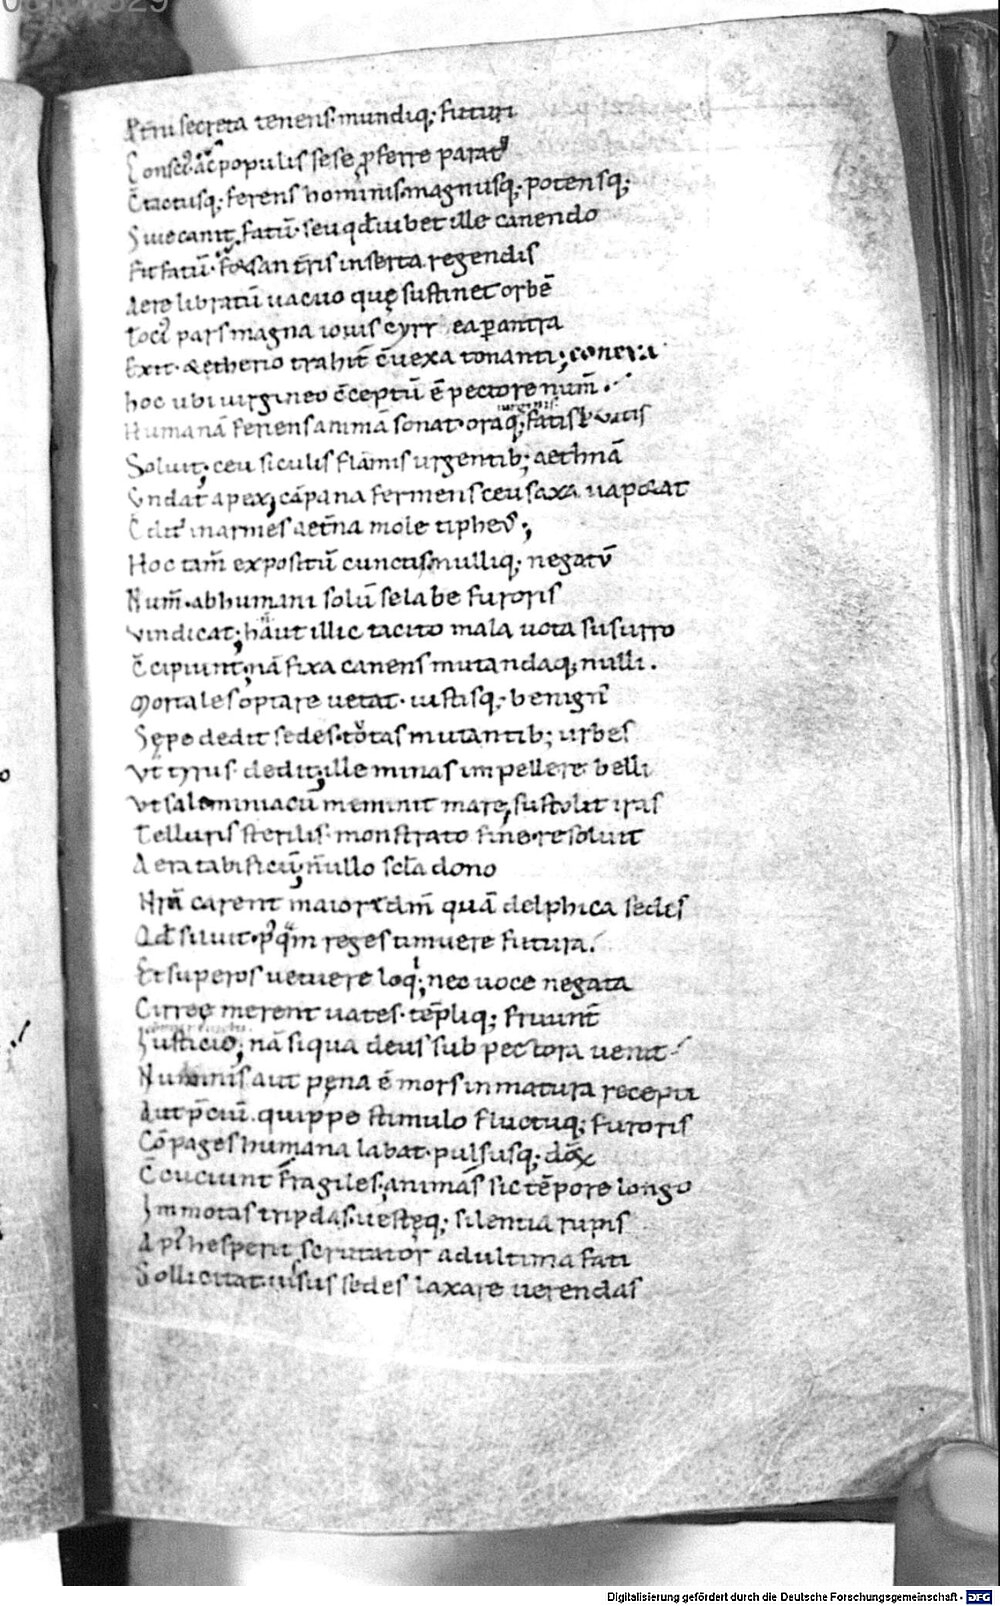 &t̄ni secreta tenens· mundiq; futuri
Consci᷒· ac̄ populis sese ꝓferre parat᷒
C̄tactusq; ferens hominis· magnusq; potensq;
Siue canit· fatū· seu qd̄ iubet ille canendo
Fit fatū· forsan t̄ris inserta regendis
Aere libratū uacuo quę sustinet orbē
Toti᷒ pars magna iouis cyrr ea ꝑ antra
Exit· & etherio trahit̄ c̄uexa tonanti;
hoc ubi uirgineo c̄ceptū ē pectore num̄·
Humanā feriens animā sonat· oraq; uatis
Soluit; ceu siculis flāmis urgentib; aethnā
Vndat apex; cāpana fermens ceu saxa uaporat
C̄dit᷒ inarmes aet̄na mole tipheū;
Hoc tam̄ expositū cunctis· nulliq; negatū
Num̄· ab humani solū se labe furoris
Vindicat; haut illic tacito mala uota susurro
C̄cipiunt; nā fixa canens mutandaq; nulli·
Mortales optare uetat· iustisq; benign᷒
Sępe dedit sedes· totas mutantib; urbes
Vt tyrus· dedit; ille minas impellere belli
Vt saleminiacū meminit mare; sustolit iras
Telluris sterilis· monstrato fine· resoluit
Aera tabificū; n̄ullo sc̄la dono
Nr̄a carent maiore dm̄ quā delphica sedes
Qd̄ siluit· pq̄m reges timuere futura·
Et superos uetuere loqi; nec uoce negata
Cirreę merent uates· tēpliq; fruunt̄
Iusticio; nā siqua deus sub pectora uenit
Numinis aut pęna ē mors inmatura recepti
Aut p̄ciū· quippe stimulo fluctuq; furoris
Cōpages humana labat· pulsusq; doꝝ
C̄cuciunt fragiles· animas· sic tēpore longo
Immotas tripdas· uestęq; silentia rupis
Ap᷒ hesperii scrutator ad ultima fati
Sollicitat· uisus sedes laxare uerendas
Digitalisierung gefördert durch die Deutsche Forschungsgemeinschaft - DFG